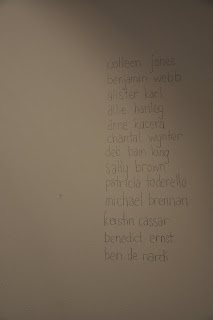 colleen jones
benjamin webb
alister karl
allie hanley
anne kucera
chantal wynter
deb bain king
sally brown
patricia todarello
michael brennan
kerstin cassar
benedict ernst
ben de nardi